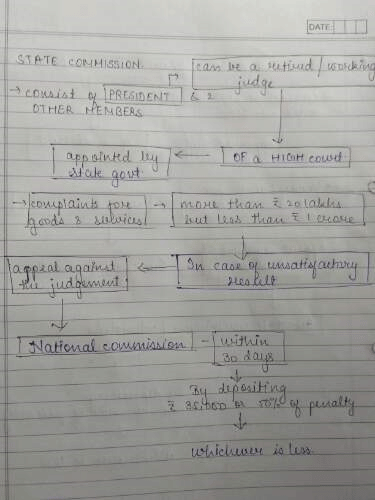 DATE
STATE COMMISSION
can be a retired / working
judge
→ consist of PRESIDENT & 2
OTHER MEMBERS
appointed by
state govt
OF a HIGH court
→ complaints for
goods & services
→ more than ₹ 20 lakhs
but less than ₹ 1 crore
In case of unsatisfactory
result
appeal against
the judgement
National commission
- within
30 days
By depositing
₹ 35,000 or 50% of penalty
whichever is less.